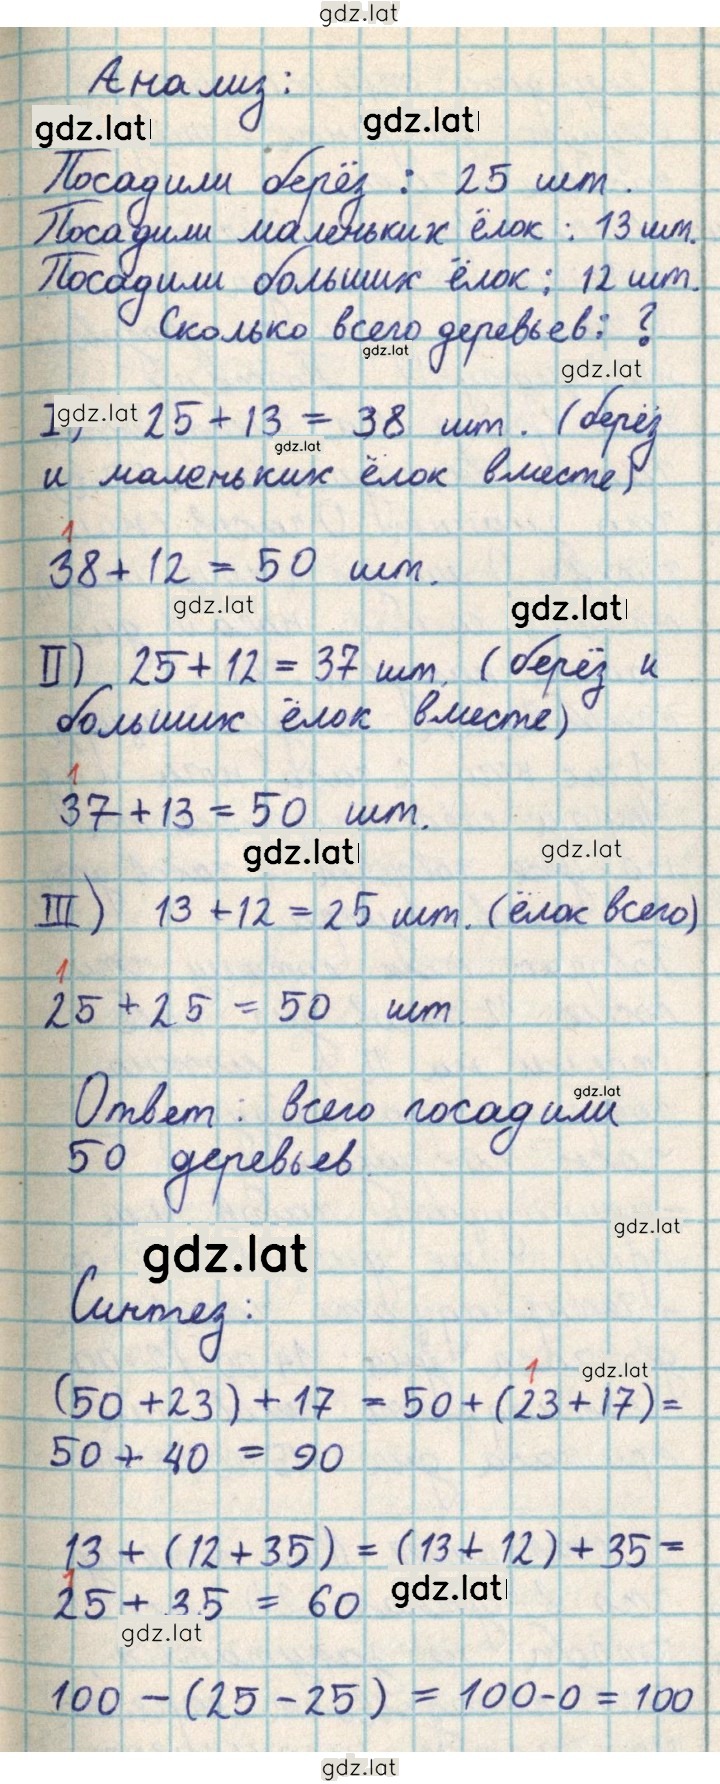 gdz.lat
Анализ:
gdz.lat gdz.lat
Посадили берёз : 25 шт.
Посадили маленьких ёлок : 13 шт.
Посадили больших ёлок : 12 шт.
Сколько всего деревьев : ?
gdz.lat
gdz.lat
I) gdz.lat 25 + 13 = 38 шт. (берёз
gdz.lat
и маленьких ёлок вместе)
1
38 + 12 = 50 шт.
gdz.lat gdz.lat
II) 25 + 12 = 37 шт. (берёз и
больших ёлок вместе)
1
37 + 13 = 50 шт.
gdz.lat gdz.lat
III) 13 + 12 = 25 шт. (ёлок всего)
1
25 + 25 = 50 шт.
gdz.lat
Ответ : всего посадили
50 деревьев.
gdz.lat
gdz.lat
Синтез :
1 gdz.lat
(50 + 23) + 17 = 50 + (23 + 17) =
50 + 40 = 90
13 + (12 + 35) = (13 + 12) + 35 =
1
25 + 35 = 60 gdz.lat
gdz.lat
100 - (25 - 25) = 100 - 0 = 100
gdz.lat